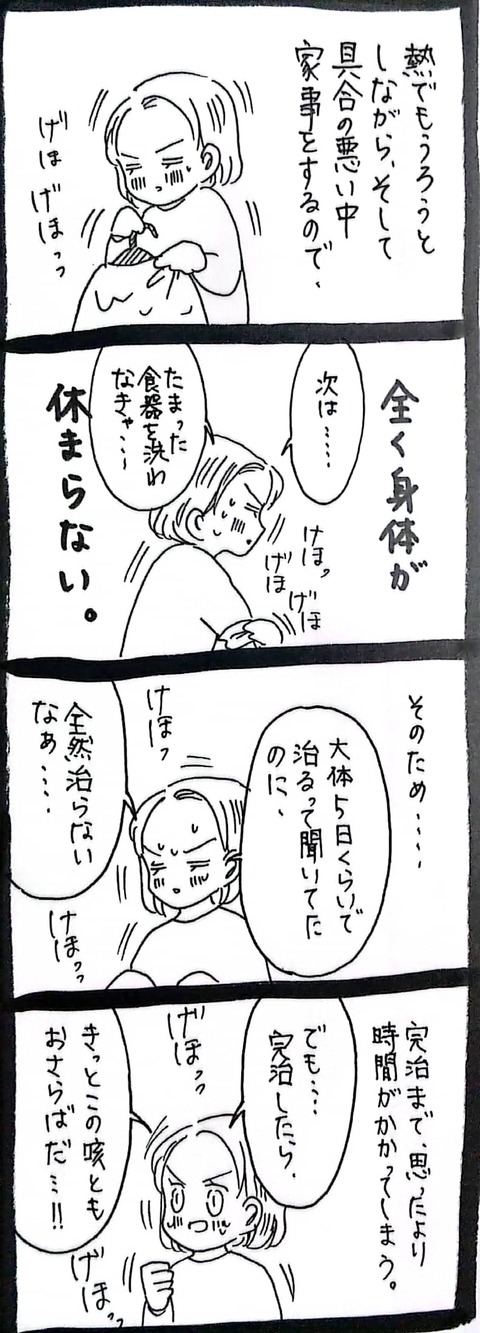 熱でもうろうと
しながら、そして
具合の悪い中
家事をするので、
げほ
げほっっ
全く身体が
休まらない。
次は……
たまった
食器を洗わ
なきゃ…〜
けほっ
げほ
げほ
そのため……
大体5日くらいで
治るって聞いてた
のに、
けほっ
全然治らない
なぁ……
けほっっ
完治まで、思ったより
時間がかかってしまう。
でも……
完治したら、
げほっっ
きっとこの咳とも
おさらばだ…!!
げほっっ